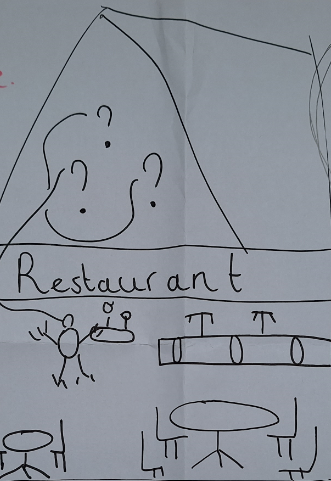 ?
? ?
Restaurant